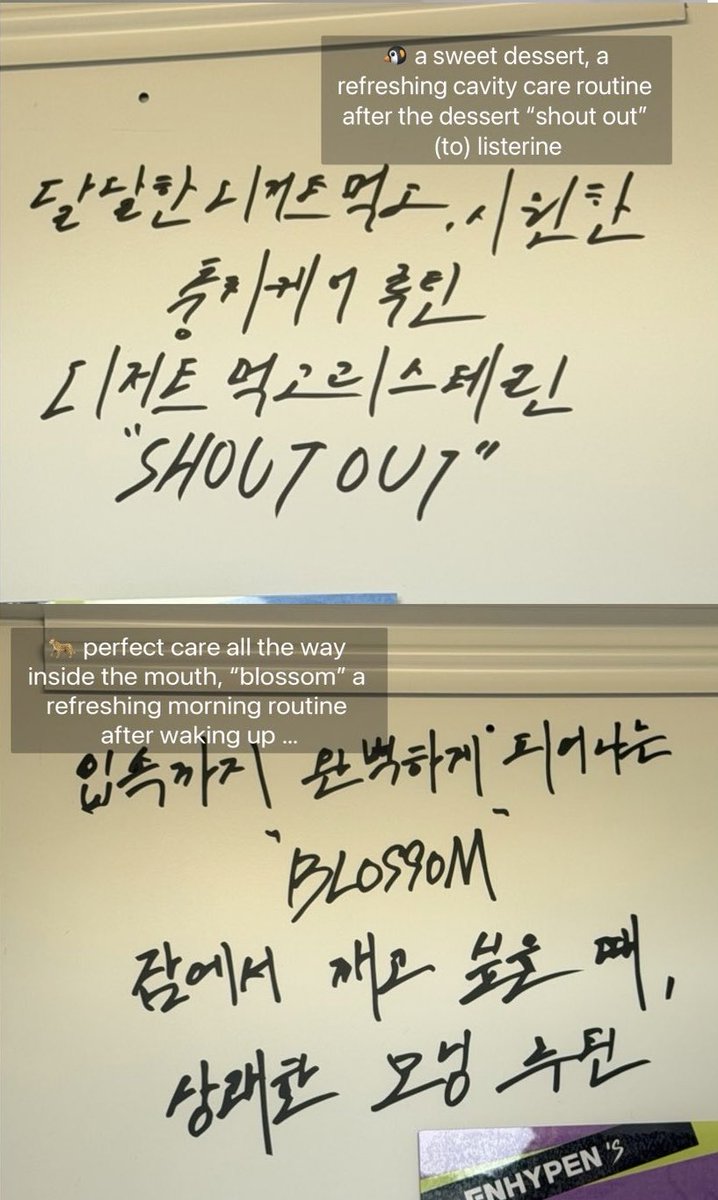 🐧 a sweet dessert, a
refreshing cavity care routine
after the dessert “shout out”
(to) listerine
달달한 디저트 먹고, 시원한
충치케어 루틴
디저트 먹고 리스테린
"SHOUT OUT"
🐆 perfect care all the way
inside the mouth, “blossom” a
refreshing morning routine
after waking up ...
입속까지 완벽하게 피어나는
"BLOSSOM"
잠에서 깨고 싶을 때,
상쾌한 모닝 루틴
ENHYPEN'S